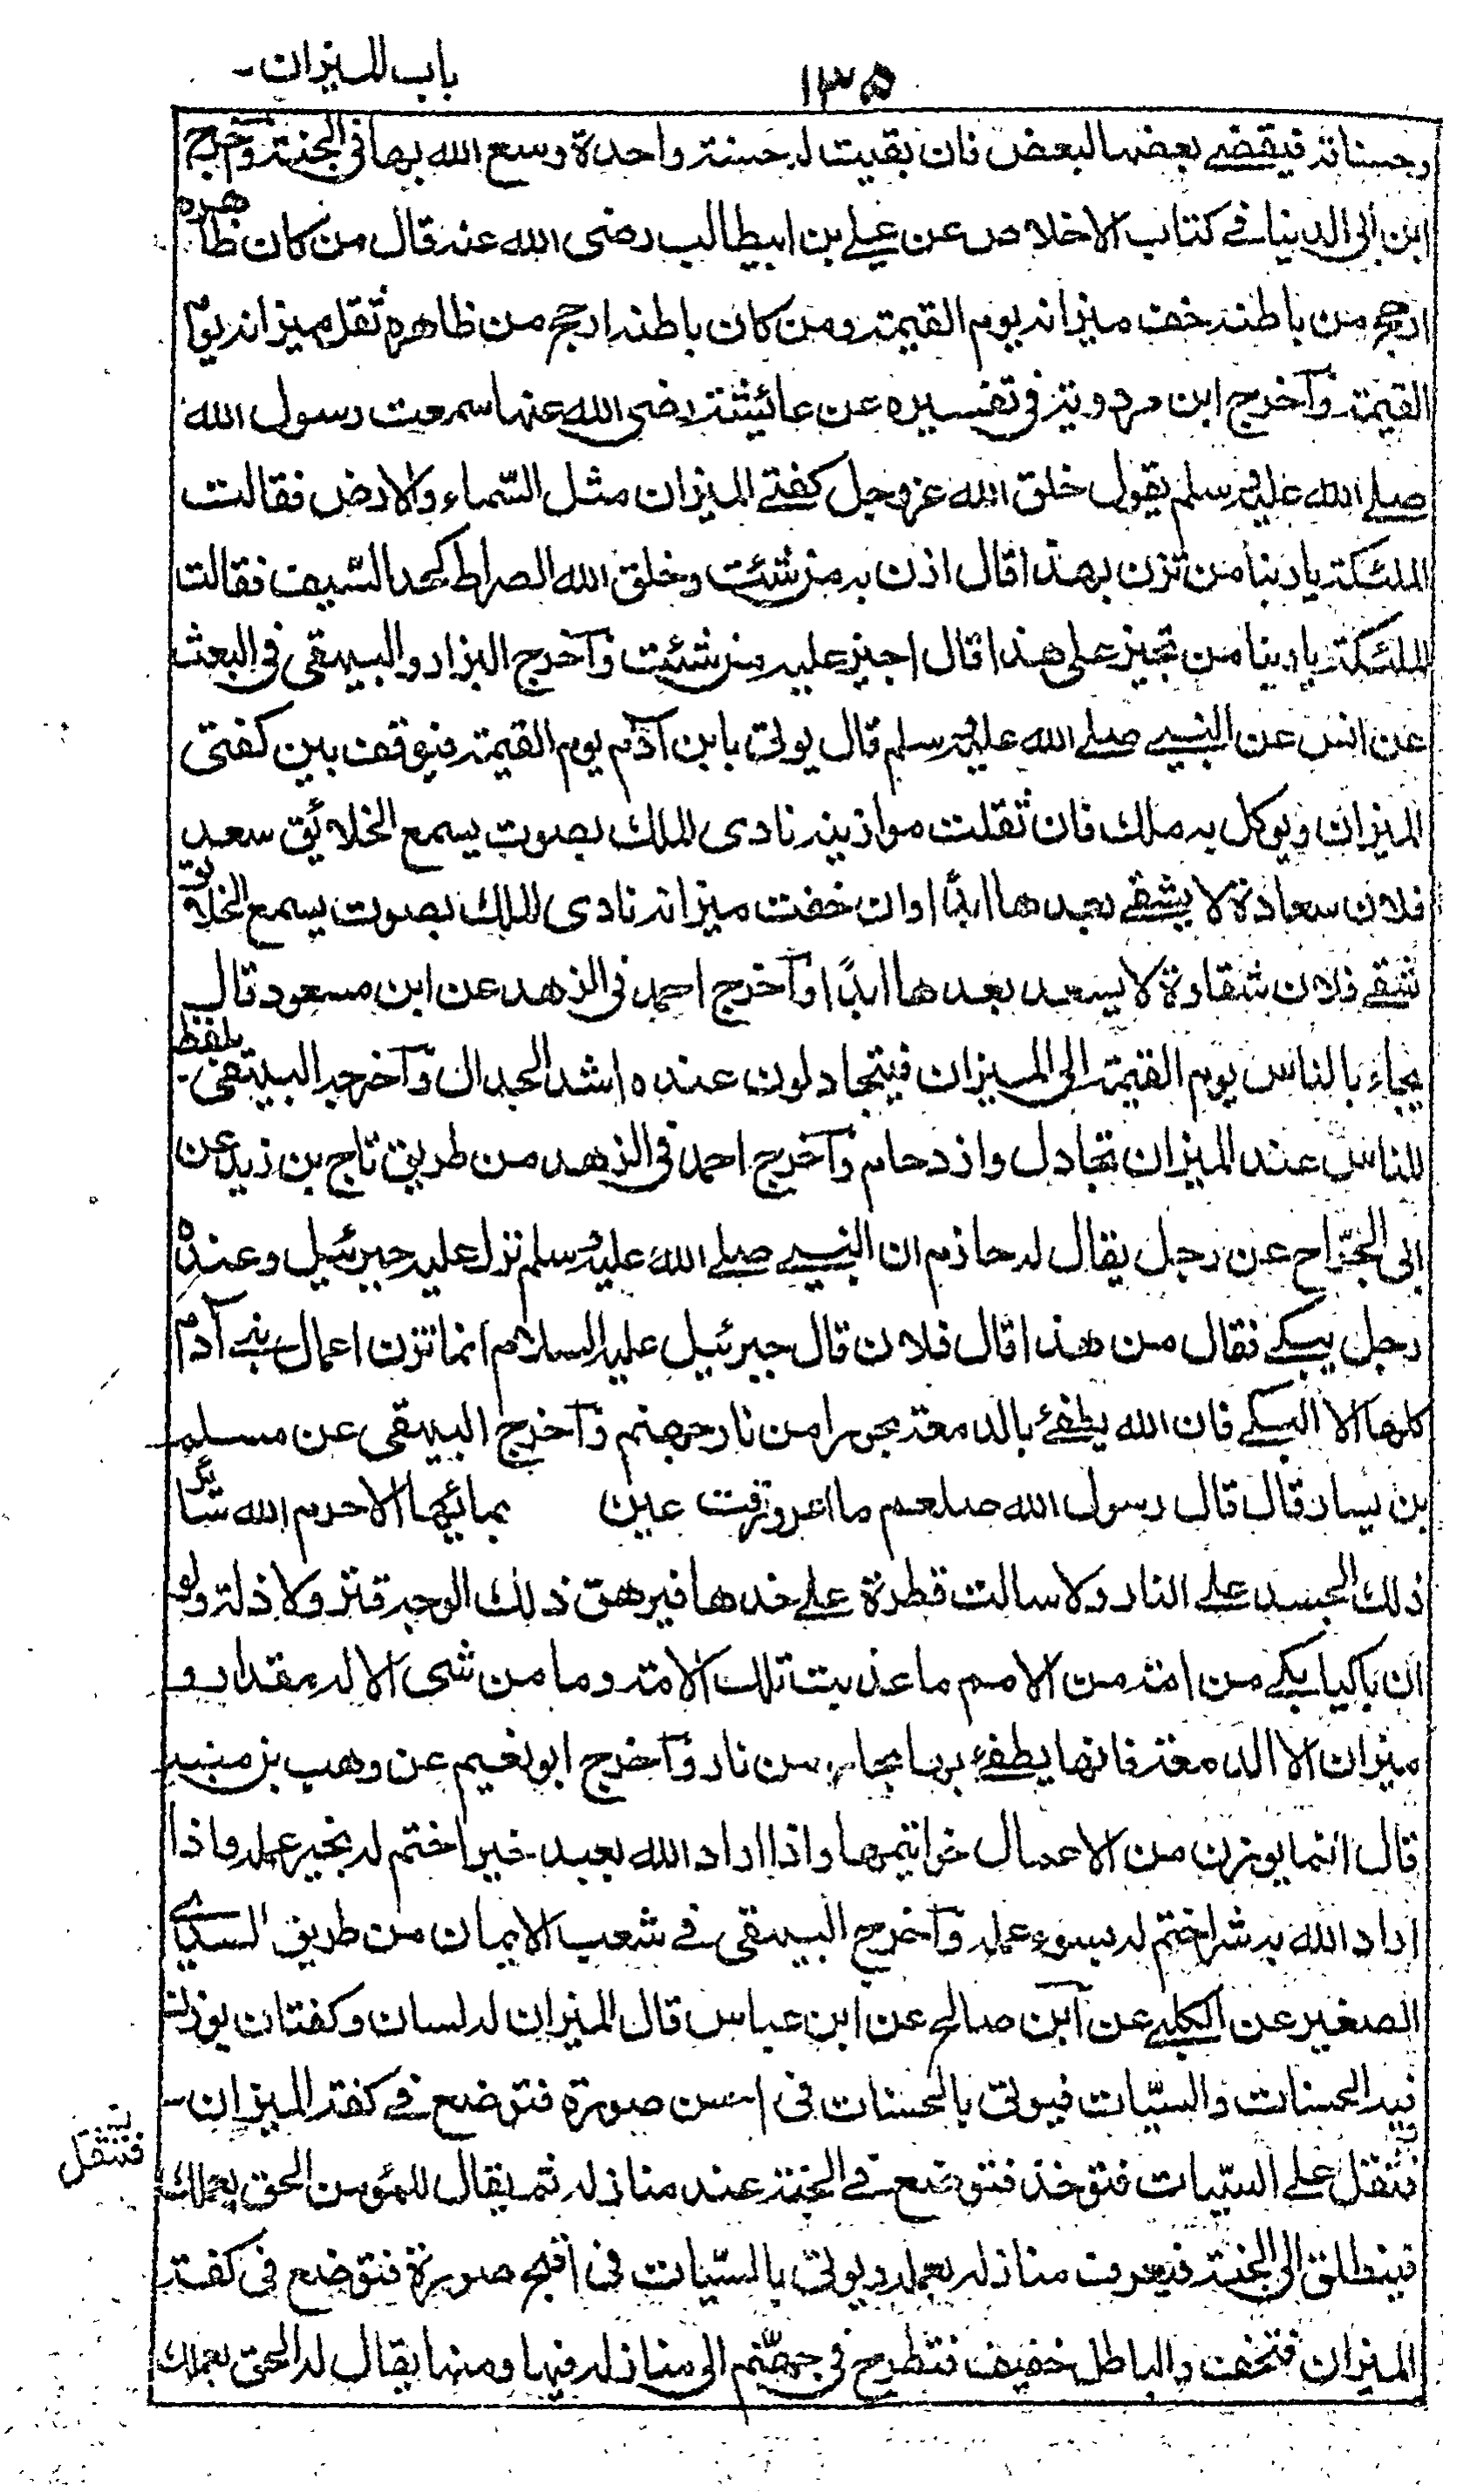 باب الميزان
١٣٥
وحسناته فيقضے بعضها لبعض فان بقيت له حسنة واحدة وسع الله بها فى الجنة وآخرج
ابن أبى الدنيا فے كتاب الاخلاص عن علے بن ابيطالب رضى الله عنه قال من كان ظاهره
ارجح من باطنه خف ميزانه يوم القيمة ومن كان باطنه ارجح من ظاهره ثقل ميزانه يوم
القيمة وآخرج ابن مردويه فى تفسيره عن عائيشة رضى الله عنها سمعت رسول الله
صلے الله عليه وسلم يقول خلق الله عز وجل كفتے الميزان مثل السّماء والارض فقالت
الملئكة ياربنا من تزن بهذا قال ازن به من شئت وخلق الله الصراط كحد السّيف فقالت
الملئكة ياربنا من تجيز على هذا قال اجيز عليه من شئت وآخرج البزار والبيهقى فى البعث
عن انس عن النبے صلے الله عليه وسلم قال يولى بابن آدم يوم القيمة فيوقف بين كفتى
الميزان ويوكل به ملك فان ثقلت موازينه نادى الملك بصوت يسمع الخلائق سعد
فلان سعادة لا يشقے بعدها ابدًا وان خفت ميزانه نادى الملك بصوت يسمع الخلائق
شقے فلان شقاوة لا يسعد بعدها ابدًا وآخرج احمد فى الزهد عن ابن مسعود قال
يجاء بالناس يوم القيمة الى الميزان فيتجادلون عنده اشد الجدال وآخرجه البيهقى بلفظ
للناس عند الميزان تجادل وازدحام وآخرج احمد فى الزهد من طريق تاج بن زيد عن
ابى الجرّاح عن رجل يقال له حازم ان النبے صلے الله عليه وسلم نزل عليه جبرئيل وعنده
رجل يبكے فقال من هذا قال فلان قال جبرئيل عليه السلام انما تزن اعمال بنے آدم
كلها الا البكے فان الله يطفئ بالدمعة بحورا من نار جهنم وآخرج البيهقى عن مسلم
بن يسار قال قال رسول الله صلعم ما اغرورقت عين بمائها الا حرم الله سائر
ذلك الجسد علے النار ولا سالت قطرة علے خدها فيرهق ذلك الوجه قتر ولا ذلة ولو
ان باكيا يبكے من امة من الامم ما عذبت تلك الامة وما من شى الا له مقدار و
ميزان الا الدمعة فانها يطفے بها بحار من نار وآخرج ابو نعيم عن وهب بن منبه
قال انما يوزن من الاعمال خواتيمها واذا اراد الله بعبد خيرا ختم له بخير عمله واذا
اراد الله به شرا ختم له بسوء عمله وآخرج البيهقى فے شعب الايمان من طريق السدى
الصغير عن الكلبے عن آبن صالح عن ابن عباس قال الميزان له لسان وكفتان يوزن
فيه الحسنات والسيّات فيولى بالحسنات فى احسن صورة فتوضع فے كفة الميزان
فتثقل على السيّات فتوخذ فتوضع فے الجنة عند منازله ثم يقال للمؤمن الحق بعملك
فتثقل
فينطلق الى الجنة فيعرف منازله بعمله ويولى بالسيّات فى اقبح صورة فتوضع فى كفة
الميزان فتخف والباطل خفيف فتطرح فى جهنّم الى منازله فيها ومنها يقال له الحق بعملك